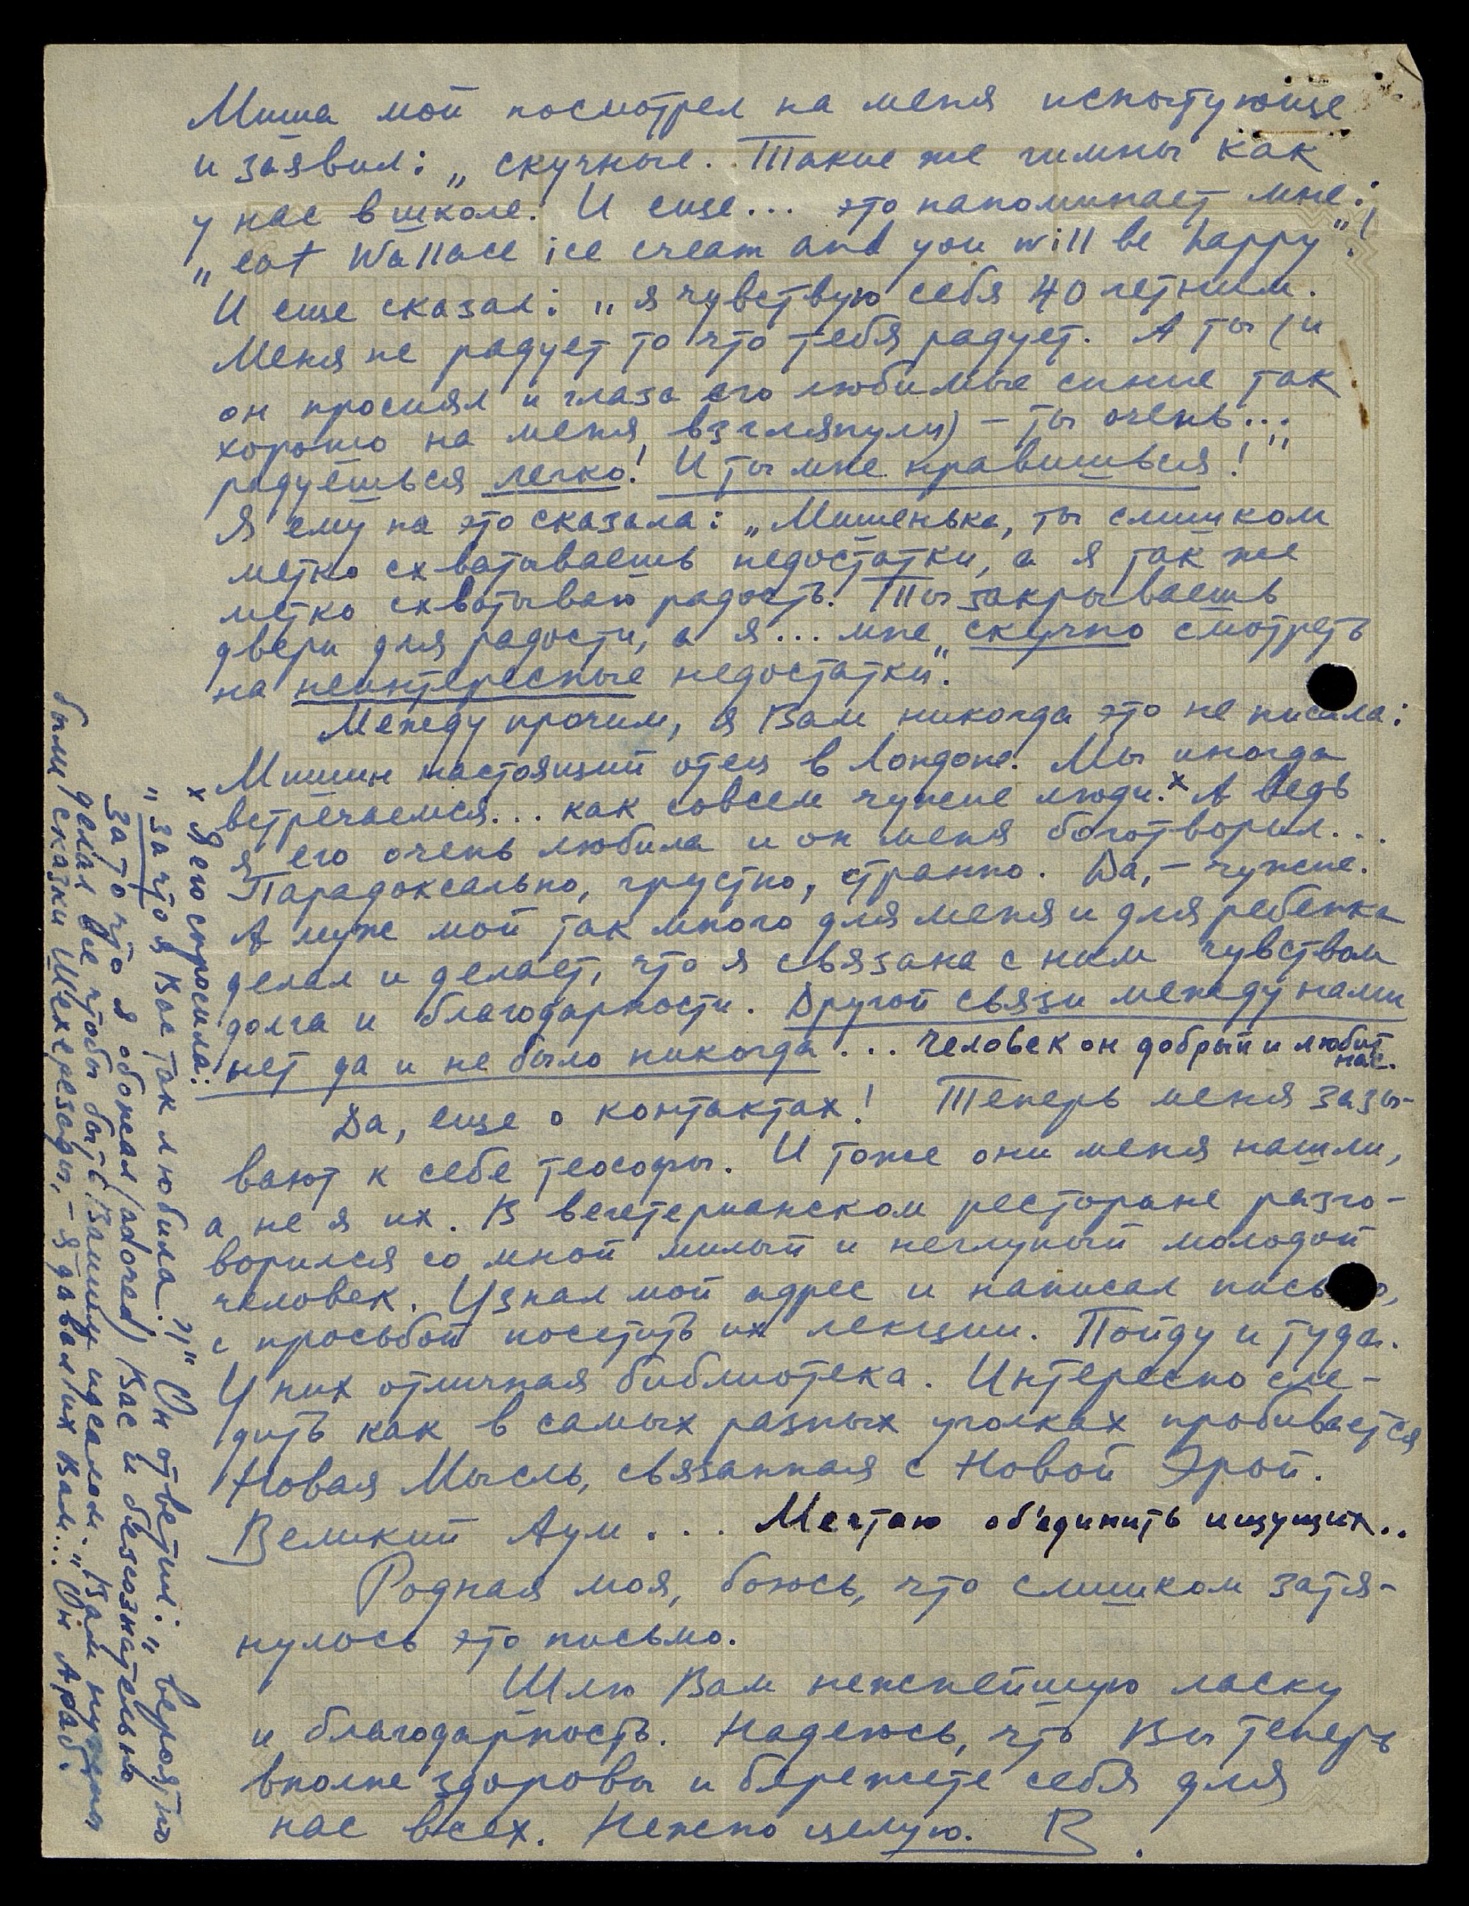 Миша мой посмотрел на меня испытующе
и заявил: „скучные. Такие же гимны как
у нас в школе. И еще... это напоминает мне:
„eat Wallace ice cream and you will be happy"!
И еще сказал: „я чувствую себя 40 летним.
Меня не радует то что тебя радует. А ты (и
он просиял и глаза его любимые синие так
хорошо на меня взглянули) – ты очень...
радуешься легко! И ты мне нравишься!"
Я ему на это сказала: „Мишенька, ты слишком
метко схватываешь недостатки, а я так же
метко схватываю радость. Ты закрываешь
двери для радости, а я... мне скучно смотреть
на неинтересные недостатки".
Между прочим, я Вам никогда это не писала:
Мишин настоящий отец в Лондоне. Мы иногда
встречаемся... как совсем чужие люди.ˣ А ведь
я его очень любила и он меня боготворил...
Парадоксально, грустно, странно. Да, – чужие.
А муж мой так много для меня и для ребенка
делал и делает, что я связана с ним чувством
долга и благодарности. Другой связи между нами
нет да и не было никогда... Человек он добрый и любит
нас.
Да, еще о контактах! Теперь меня зазы-
вают к себе теософы. И тоже они меня нашли,
а не я их. В вегетерианском ресторане разго-
ворился со мной милый и неглупый молодой
человек. Узнал мой адрес и написал письмо,
с просьбой посетить их лекции. Пойду и туда.
У них отличная библиотека. Интересно сле-
дить как в самых разных уголках пробивается
Новая Мысль, связанная с Новой Эрой.
Великий Аум... Мечтаю об'единить ищущих..
Родная моя, боюсь, что слишком затя-
нулось это письмо.
Шлю Вам нежнейшую ласку
и благодарность. Надеюсь, что Вы теперь
вполне здоровы и бережете себя для
нас всех. Нежно целую. В.
х Я его спросила:
„за что я Вас так любила?" Он ответил: „вероятно
за то что я обожал (adored) Вас и безсознательно
делал все чтобы быть Вашим идеалом. Вам нужны
были сказки Шехерезады, – я давал их Вам..." Он Араб.